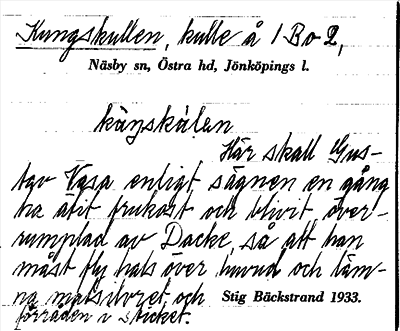 Kungskullen, kulle å 1 Bo 2,
Näsby sn, Östra hd, Jönköpings l.
kåŋskålen
Här skall Gus-
tav Vasa enligt sägnen en gång
ha ätit frukost och blivit över-
rumplad av Dacke, så att han
måst fly hals över huvud och läm-
na matsilvret och
Stig Bäckstrand 1933.
förråden i sticket.